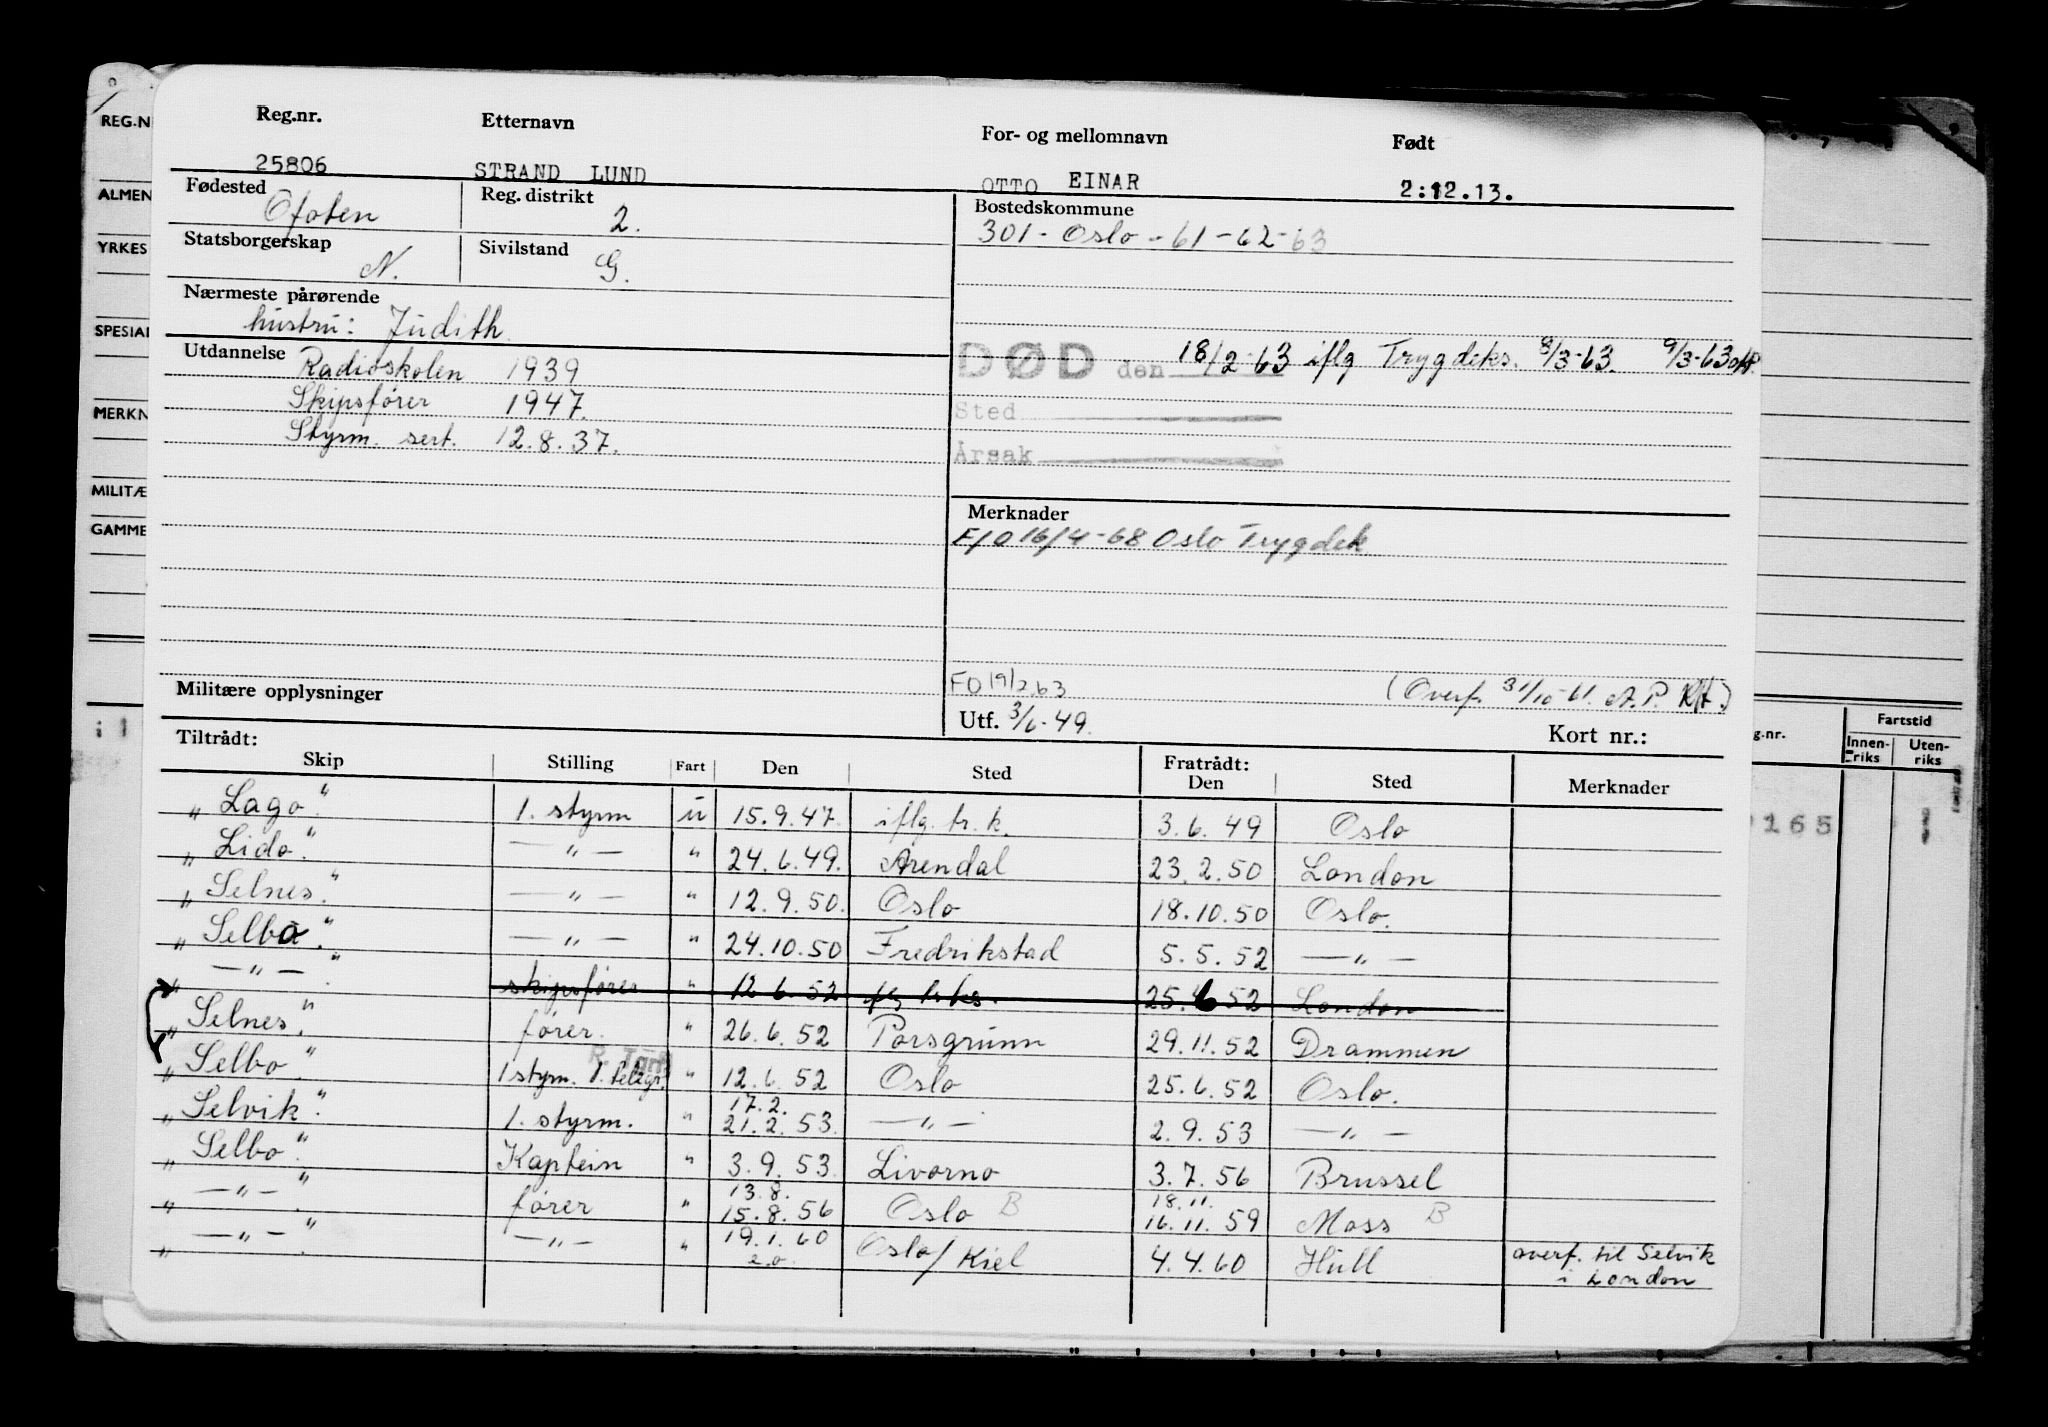 Reg.nr. Etternavn For- og mellomnavn Født
25806 STRAND LUND OTTO EINAR 2.12.13.
Fødested Ofoten Reg. distrikt 2.
Statsborgerskap N. Sivilstand G.
Nærmeste pårørende
hustru: Judith.
Utdannelse Radioskolen 1939
Skipsfører 1947.
Styrm. sert. 12.8.37.
Bostedskommune
301 - Oslo - 61-62-63
DØD den 18/2-63 iflg Trygdeks. 8/3-63. 9/3-63
Sted
Årsak
Merknader
F/O 16/4-68 Oslo Trygdek
Militære opplysninger
FO 19/2 63 (Overf. 31/10-61. A.P. )
Utf. 3/6-49. Kort nr.:
Tiltrådt: Fratrådt:
Skip Stilling Fart Den Sted Den Sted Merknader
"Lago." 1. styrm u 15.9.47. iflg. tr.k. 3.6.49 Oslo
"Lido." —"— " 24.6.49. Arendal 23.2.50 London
"Selnes." —"— " 12.9.50. Oslo 18.10.50 Oslo.
"Selbo." —"— " 24.10.50 Fredrikstad 5.5.52 —"—
" —"— ." skipsfører " 12.6.52 25.6.52 London
"Selnes." fører. " 26.6.52 Porsgrunn 29.11.52 Drammen
"Selbo." 1 styrm. 1. telegr. " 12.6.52 Oslo 25.6.52 Oslo.
17.2.
"Selvik." 1. styrm. " 21.2.53. —"— 2.9.53 —"—
"Selbo." Kaptein " 3.9.53. Livorno 3.7.56 Brussel
13.8. 18.11.
" —"— ." fører " 15.8.56 Oslo B 16.11.59 Moss B
" —"— ." —"— " 19.1.60 Oslo/Kiel 4.4.60 Hull overf. til Selvik
i London
REG.N
ALMEN
YRKES
SPESIAL
MERKN
MILITÆ
GAMME
g.nr. Fartstid
Innen-riks Uten-riks
165